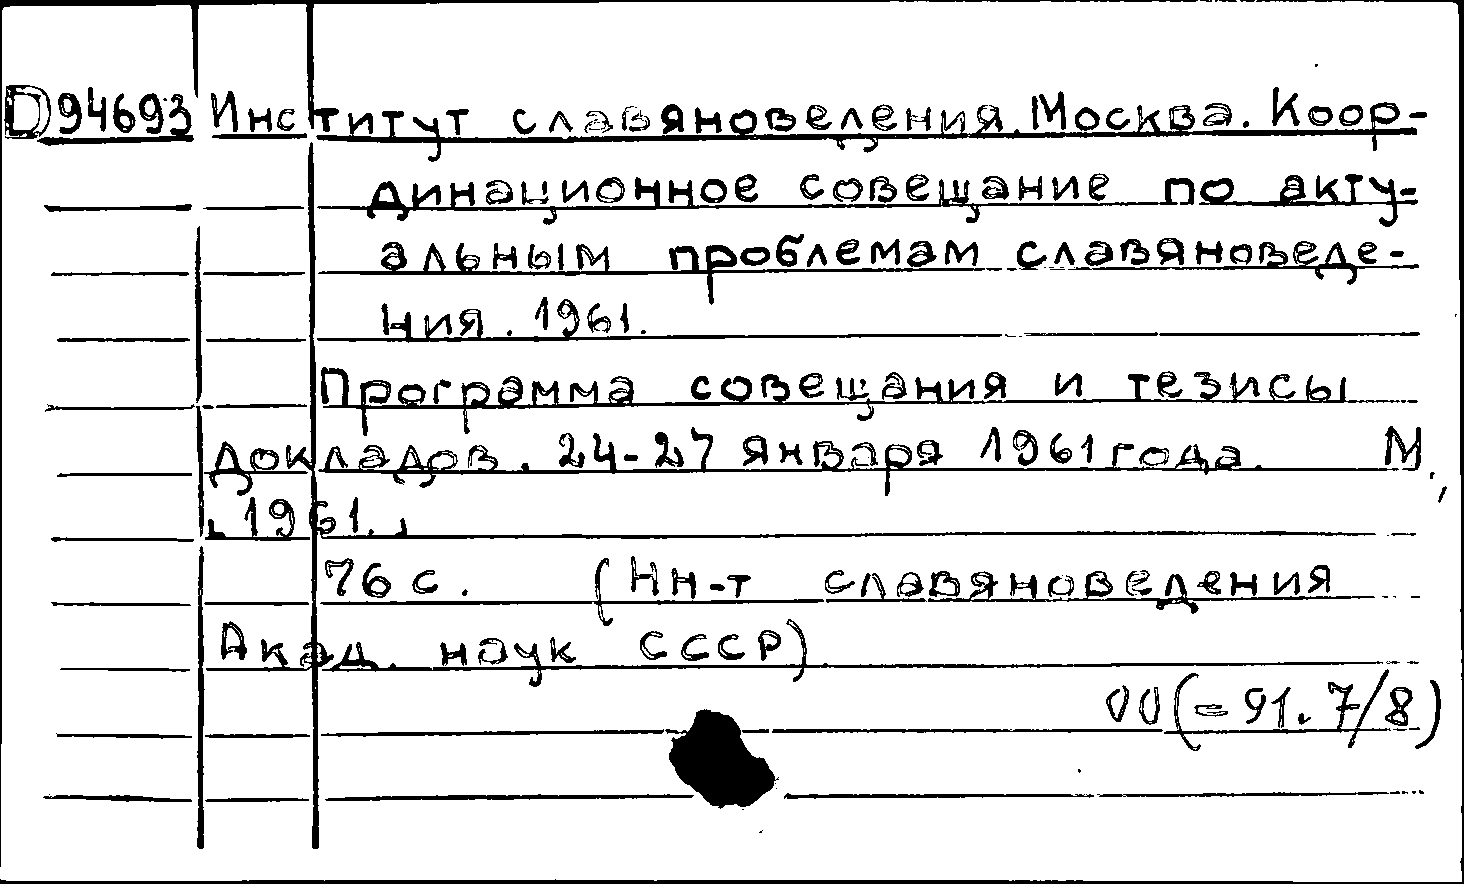 D94693 Институт славяноведения. Москва. Коор-
динационное совещание по акту-
альным проблемам славяноведе-
ния. 1961.
Программа совещания и тезисы
докладов. 24-27 января 1961 года. М.,
[1961.]
76 с. (Ин-т славяноведения
Акад. наук СССР).
00(=91.7/8)